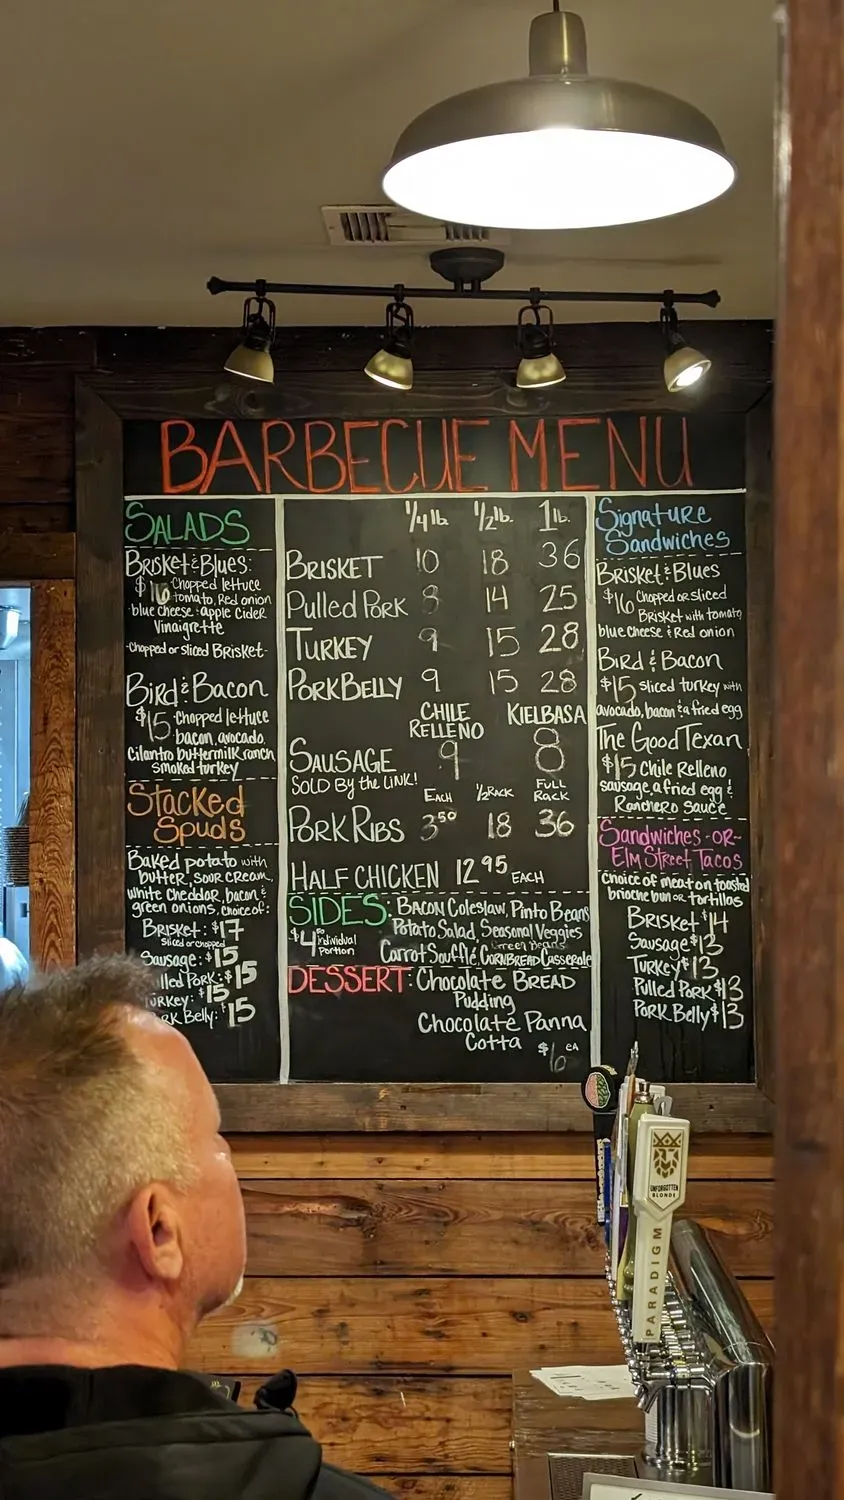 BARBECUE MENU
SALADS
BRISKET & BLUES:
$16 Chopped lettuce
tomato, Red onion
blue cheese · apple cider
Vinaigrette
-Chopped or sliced BRISKET-
BIRD & BACON
$15 Chopped lettuce
bacon, avocado,
Cilantro buttermilk ranch
smoked turkey
Stacked
Spuds
BAKED potato with
butter, sour cream,
white cheddar, bacon &
green onions. choice of:
BRISKET: $17
Sliced or chopped
Sausage: $15
lled Pork: $15
urkey: $15
rk Belly: $15
1/4 lb. 1/2 lb. 1 lb.
BRISKET 10 18 36
Pulled Pork 8 14 25
TURKEY 9 15 28
PORK BELLY 9 15 28
CHILE KIELBASA
RELLENO
SAUSAGE 9 8
SOLD BY the LINK!
EACH 1/2 RACK FULL
RACK
PORK RIBS 3.50 18 36
HALF CHICKEN 12.95 EACH
SIDES: BACON Coleslaw, Pinto Beans
Potato Salad, Seasonal Veggies
$4.50 individual
Portion
Green Beans
Carrot Soufflé, CORNBREAD Casserole
DESSERT: Chocolate BREAD
Pudding
Chocolate Panna
Cotta $6 EA
Signature
Sandwiches
BRISKET & BLUES
$16 Chopped or sliced
BRISKET with tomato
blue cheese & Red onion
BIRD & BACON
$15 sliced turkey with
avocado, bacon & a fried egg
The Good Texan
$15 Chile Relleno
sausage, a fried egg &
Ranchero Sauce
Sandwiches -OR-
Elm Street Tacos
choice of meat on toasted
brioche bun OR tortillas
BRISKET $14
Sausage $13
Turkey $13
Pulled Pork $13
Pork Belly $13
UNFORGOTTEN
BLONDE
PARADIGM